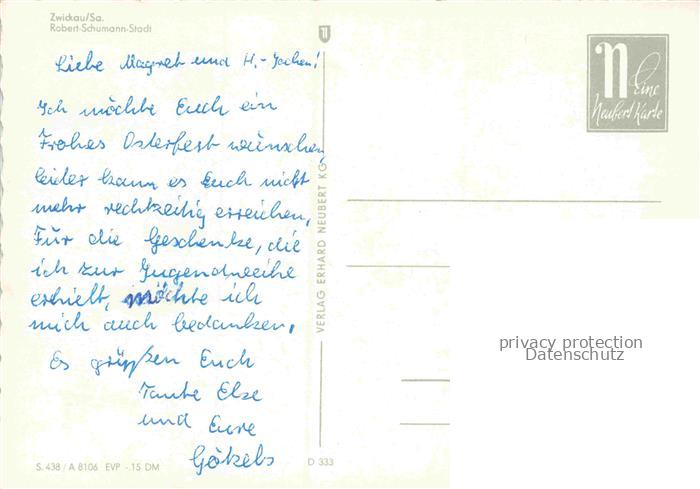 Zwickau/Sa.
Robert-Schumann-Stadt
Liebe Magret und H.-Jochen!
Ich möchte Euch ein
Frohes Osterfest wünschen,
leider kann es Euch nicht
mehr rechtzeitig erreichen,
Für die Geschenke, die
ich zur Jugendweihe
erhielt, möchte ich
mich auch bedanken.
Es grüßen Euch
Tante Else
und Eure
S. 438 / A 8106 EVP -.15 DM
D 333
VERLAG ERHARD NEUBERT KG
N
Eine
Neubert Karte
privacy protection
Datenschutz